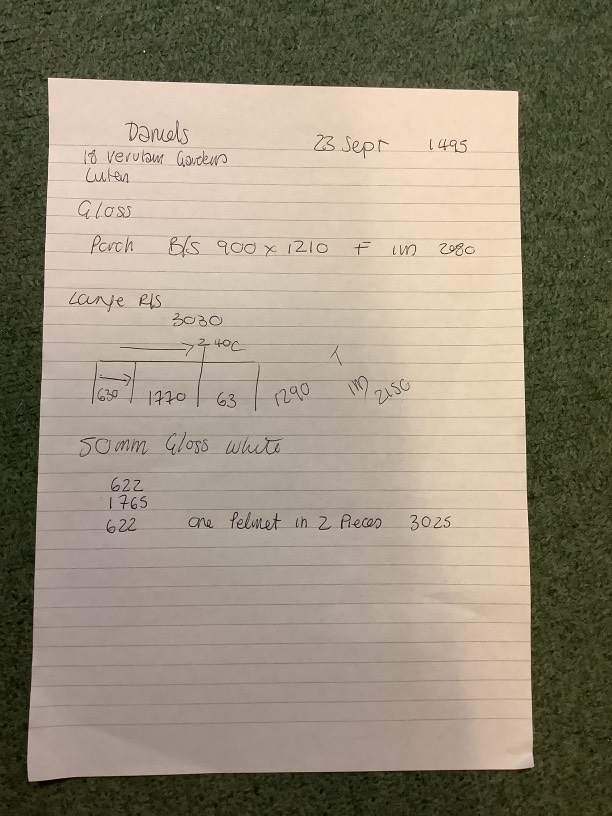 Daniels 23 Sept 1495
18 Verulam Gardens
Luton
Gloss
Porch B/S 900 x 1210 F IM 2080
Large R/S
3030
2400
630 1770 63 1290 T IM 2150
50mm Gloss White
622
1765
622 one Pelmet in 2 Pieces 3025